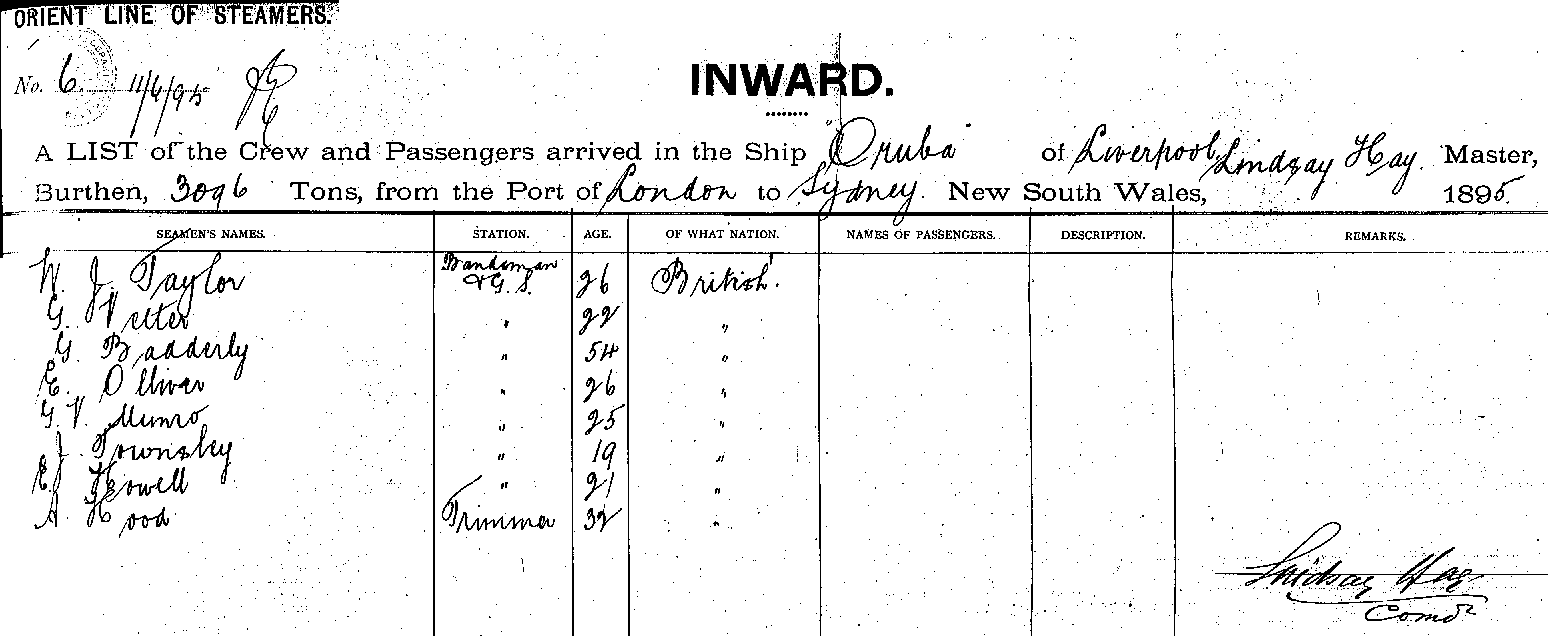 ORIENT LINE OF STEAMERS.
No. 6. 11/4/95
INWARD.
A LIST of the Crew and Passengers arrived in the Ship "Oruba" of Liverpool, Lindsay Hay. Master,
Burthen, 3096 Tons, from the Port of London to Sydney. New South Wales, 1895.
SEAMEN'S NAMES. STATION. AGE. OF WHAT NATION. NAMES OF PASSENGERS. DESCRIPTION. REMARKS.
W. J. Taylor Bandsman & G. S. 26 British.
G. Vetter " 22 "
G. Badderly " 54 "
E. Olliver " 26 "
G. V. Munro " 25 "
J. Townsley " 19 "
E. J. Howell " 21 "
A. Hood Trimmer 32 "
Lindsay Hay
Comdr